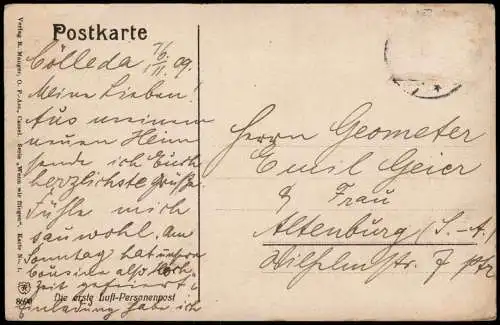 Postkarte
Cölleda, 7/6 11. 09.
Meine Lieben!
Aus meinem
neuen Heim
sende ich Euch
herzlichste Grüße.
Fühle mich
sauwohl. Am
Sonntag hat unsere
Cousine also Hoch-
zeit gefeiert
Einladung habe ich
Die erste Luft-Personenpost
Herrn Geometer
Emil Geier
& Frau
Altenburg (S.-A.)
Wilhelmstr. 7 ptr
Verlag R. Mutger, O. P.-Ass., Cassel. Serie „Wenn wir fliegen“. Karte No. 1.
8690